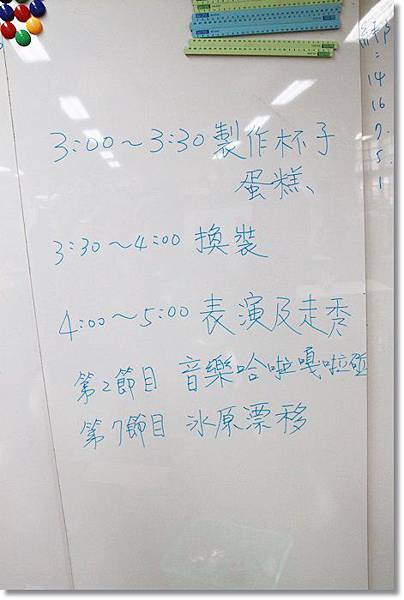 3:00～3:30 製作杯子
蛋糕、
3:30～4:00 換裝
4:00～5:00 表演及走秀
第2節目 音樂哈啦嘎啦碰
第7節目 冰原漂移
14
16
7.
5.
1